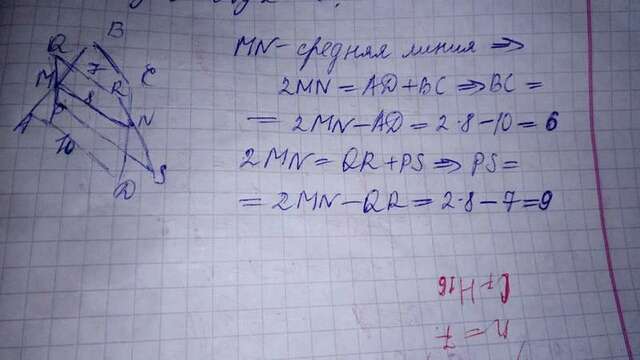 B
Q
7
C
M
R
8
A
P
N
10
S
D
MN - средняя линия ⇒
2MN = AD + BC ⇒ BC =
= 2MN - AD = 2·8 - 10 = 6
2MN = QR + PS ⇒ PS =
= 2MN - QR = 2·8 - 7 = 9
n = 7
C7H16